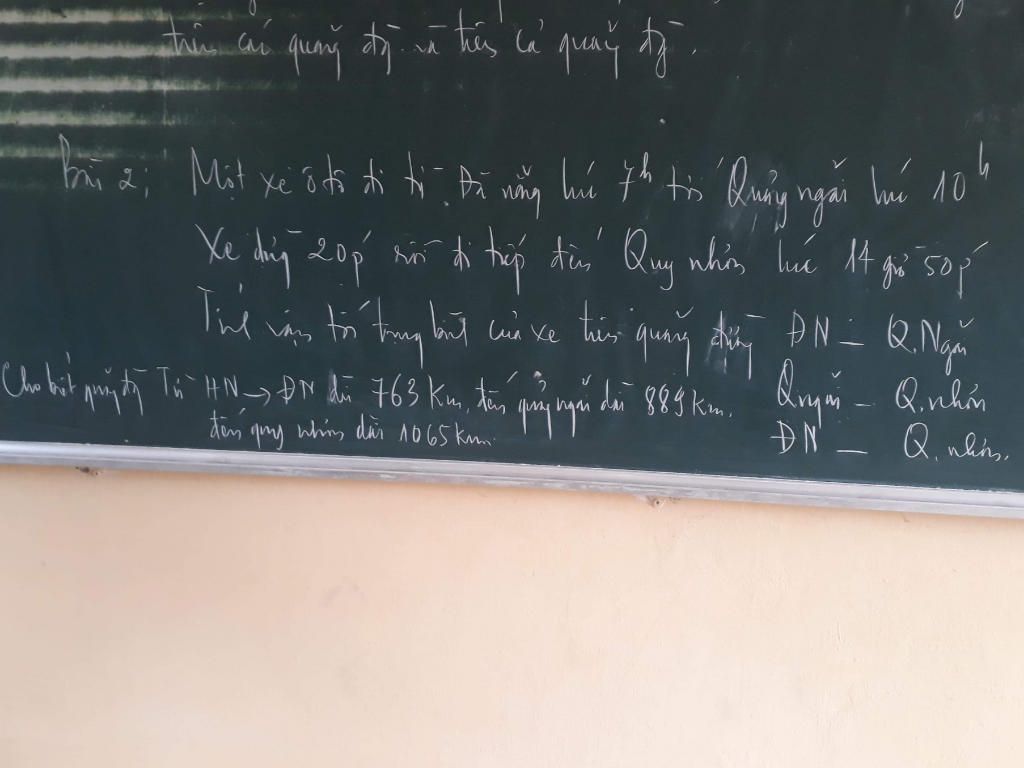 trên cả quãng đg và trên cả quãng đg.
Bài 2: Một xe ô tô đi từ Đà nẵng lúc 7h tới Quảng ngãi lúc 10h
Xe dừng 20p' rồi đi tiếp đến Quy nhơn lúc 14 giờ 50p'
Tính vận tốc trung bình của xe trên quãng đường ĐN – Q.Ngãi
Qngãi – Q.nhơn
ĐN – Q.nhơn.
Cho biết quãng đg Từ HN → ĐN dài 763 Km, đến quảng ngãi dài 889 km.
đến quy nhơn dài 1065 km.